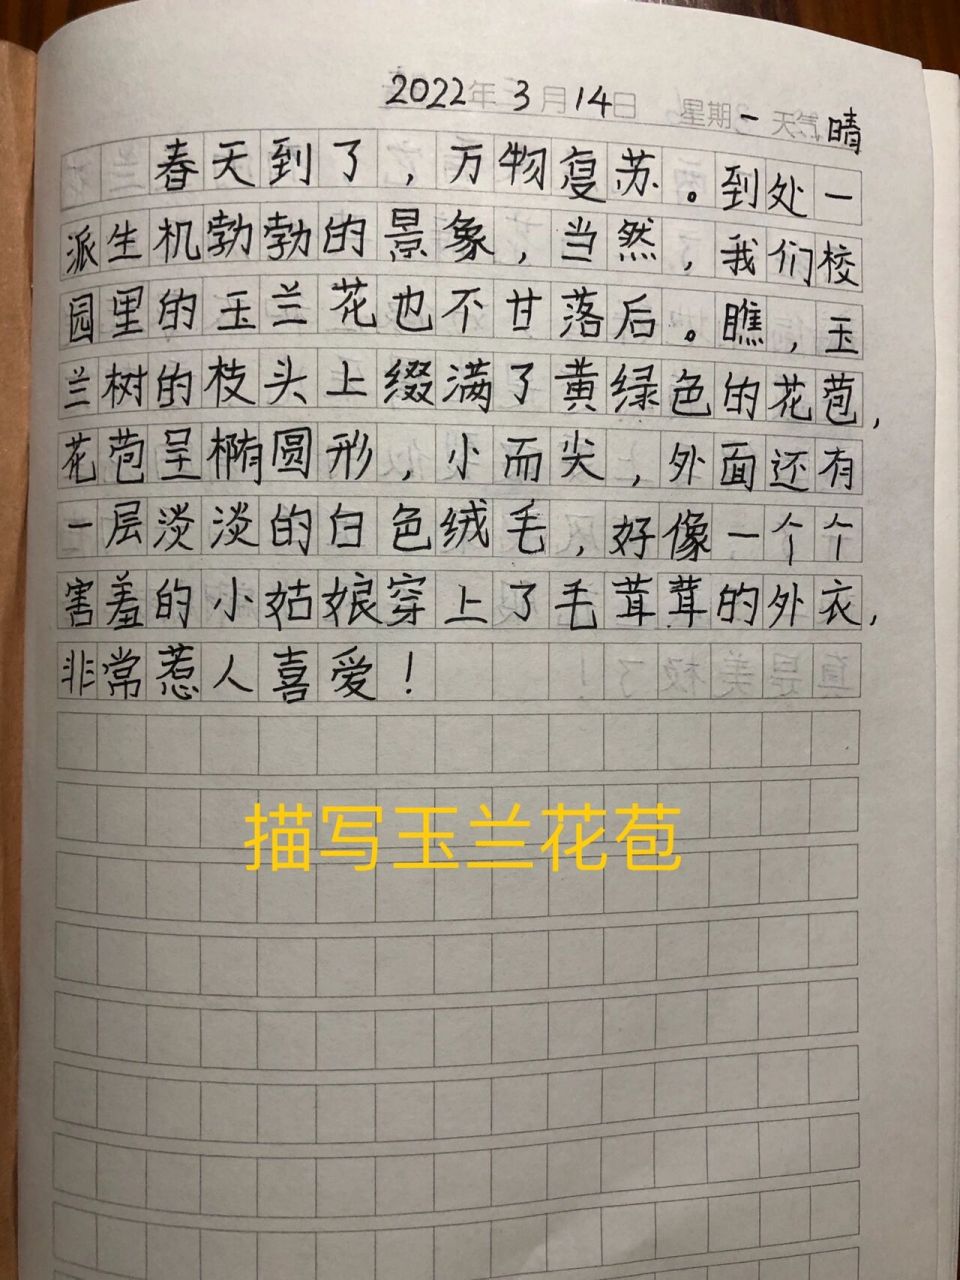 2022年 3月14日 星期一 天气 晴
春天到了，万物复苏。到处一
派生机勃勃的景象，当然，我们校
园里的玉兰花也不甘落后。瞧，玉
兰树的枝头上缀满了黄绿色的花苞，
花苞呈椭圆形，小而尖，外面还有
一层淡淡的白色绒毛，好像一个个
害羞的小姑娘穿上了毛茸茸的外衣，
非常惹人喜爱！
描写玉兰花苞